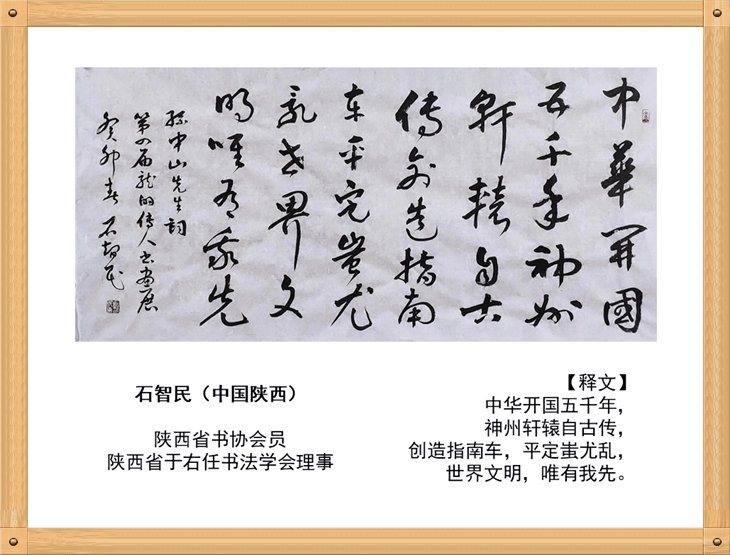 中華開國
五千年神州
軒轅自古
傳創造指南
車平定蚩尤
亂世界文
明唯有我先
孫中山先生詞
第四届龍的傳人書畫展
癸卯春 石智民
石智民（中国陕西）
陕西省书协会员
陕西省于右任书法学会理事
【释文】
中华开国五千年，
神州轩辕自古传，
创造指南车，平定蚩尤乱，
世界文明，唯有我先。